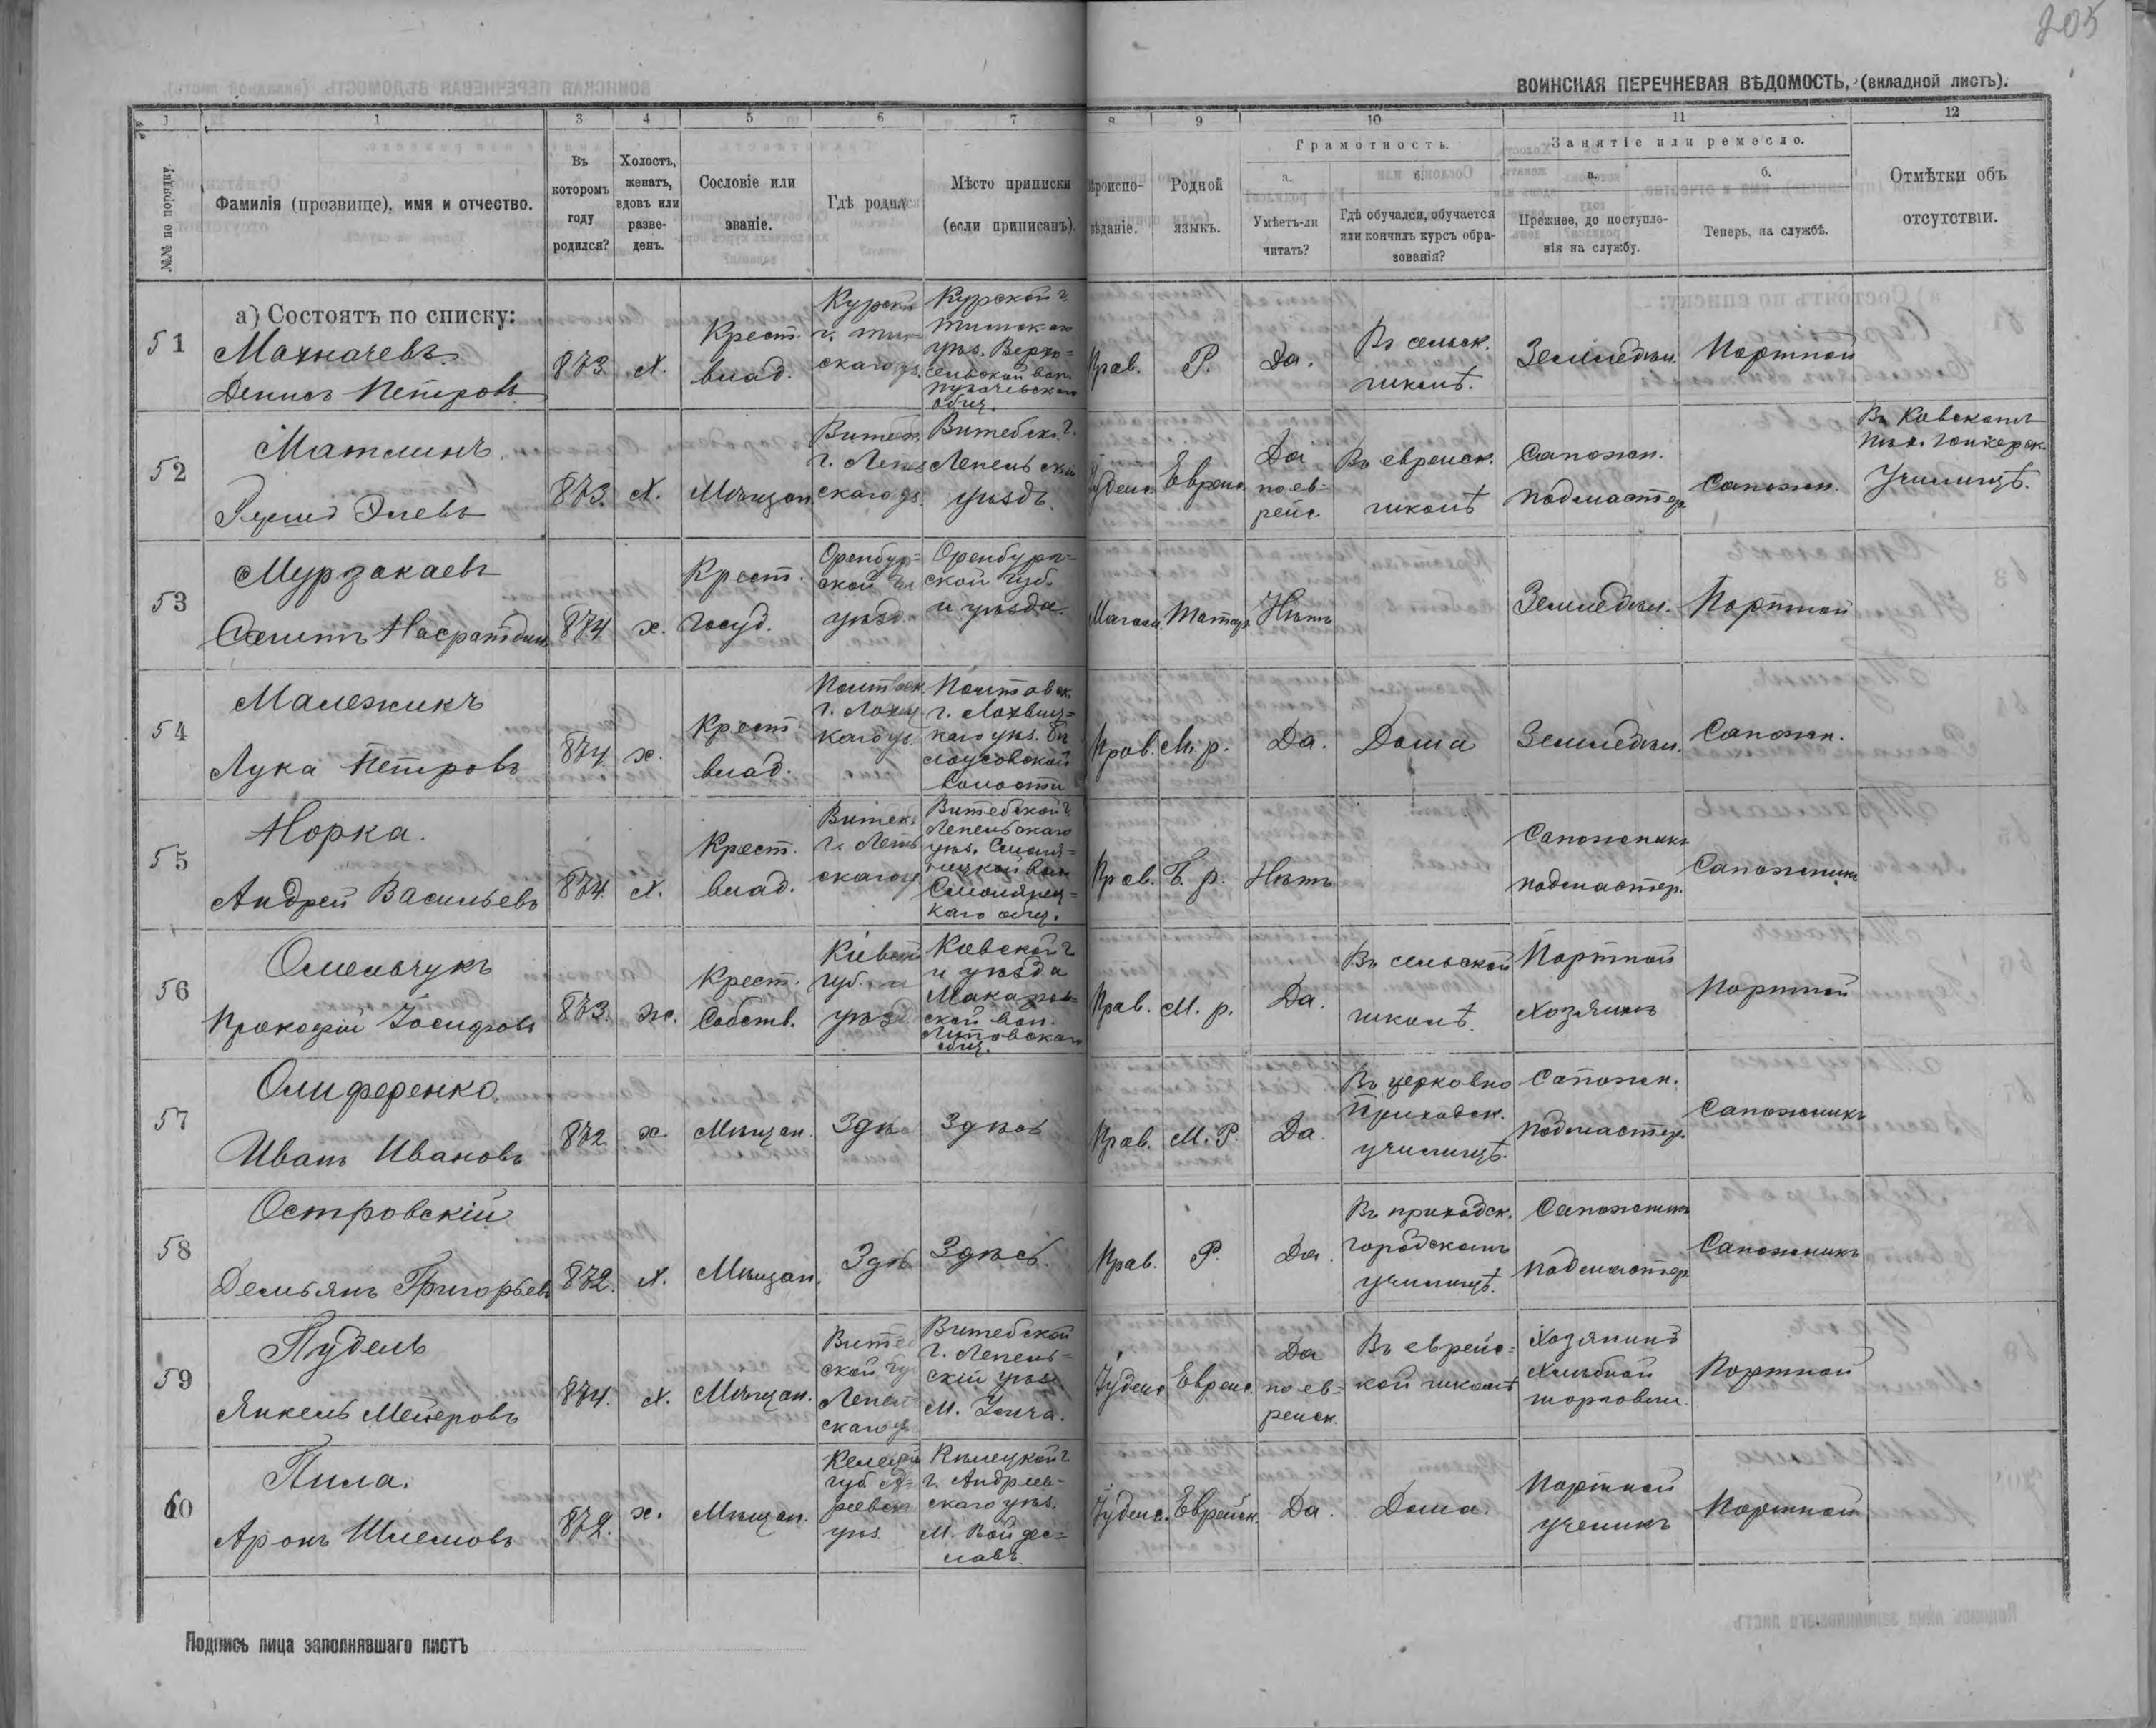 205
ВОИНСКАЯ ПЕРЕЧНЕВАЯ ВѢДОМОСТЬ, (вкладной листъ).
1 1 3 4 5 6 7 8 9 10 11 12
№№ по порядку.
Фамилія (прозвище), имя и отчество.
Въ которомъ году родился?
Холостъ, женатъ, вдовъ или разве-денъ.
Сословіе или званіе.
Гдѣ родил
Мѣсто приписки (если приписанъ).
Вѣроиспо-вѣданіе.
Родной языкъ.
Грамотность.
а. Умѣетъ-ли читать?
б. Гдѣ обучался, обучается или кончилъ курсъ обра-зованія?
Занятіе или ремесло.
а. Прежнее, до поступле-нія на службу.
б. Теперь, на службѣ.
Отмѣтки объ отсутствіи.
а) Состоятъ по списку:
51 Махначевъ Денисъ Петровъ 873 Х. Крест. влад. Курской г. скаго у. Курской г. Тимскаго уѣз. общ. Прав. Р. Да. Въ сельск. школѣ. Земледѣл. Портной
52 Матлинъ Эліевъ 873. Х. Мѣщан. Витебск. г. Лепельскаго у. Витебск. г. Лепельскій уѣздъ. Іудейс. Еврейс. Да по ев-рейс. Въ еврейск. школѣ Сапожн. подмастер. Сапожн. Въ Кіевскомъ юнкерск. Училищѣ.
53 Мурзакаевъ 874 х. Крест. госуд. Оренбур-ской г. и уѣзд. Оренбург-ской губ. и уѣзда. Магом. Татар. Нѣтъ Земледѣл. Портной
54 Малежикъ Лука Петровъ 874. х. Крест. влад. Полтавск. г. Лохвиц-каго у. Полтавск. г. Лохвиц-каго уѣз. волости Прав. М. р. Да. Дома Земледѣл. Сапожн.
55 Норка. Андрей Васильевъ 874. х. Крест. влад. Витебс. г. Лепель-скаго у. Витебской г. Лепельскаго уѣз. вол. каго общ. Прав. Б. р. Нѣтъ Сапожникъ подмастер. Сапожникъ
56 Омельчукъ Прокофій Іосифовъ 873. ж. Крест. Собств. Кіевской губ. и уѣзд. Кіевской г. и уѣзда Макаров-ской вол. Липовскаго общ. Прав. М. р. Да. Въ сельской школѣ. Портной Хозяинъ Портной
57 Олиференко. Иванъ Ивановъ 872 х. Мѣщан. Здѣ Здѣсь Прав. М. Р. Да. Въ церковно приходск. училищѣ. Сапожн. подмастер. Сапожникъ
58 Островскій Демьянъ Григорьевъ 872. х. Мѣщан. Здѣ Здѣсь. Прав. Р. Да. Въ приходск. городскомъ училищѣ. Сапожникъ подмастер. Сапожникъ
59 Пудель Янкель Мейеровъ 874. х. Мѣщан. Витеб ской гу Лепель скаго у Витебской г. Лепель-скій уѣз. м. Улла. Іудейс. Еврейс. Да по ев-рейск. Въ еврейс-кой школѣ Хозяинъ Хлѣбной торговли. Портной
60 Пила. Аронъ Шлемовъ 872. х. Мѣщан. Келецкой губ. Ан-реевск уѣз. Кѣлецкой г. Андреев-скаго уѣз. м. Войдис-лавъ. Іудейс. Еврейск. Да. Дома. Портной ученикъ Портной
Подпись лица заполнявшаго листъ